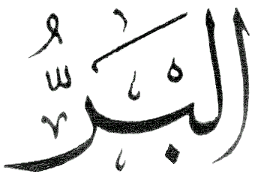 البَرُّ